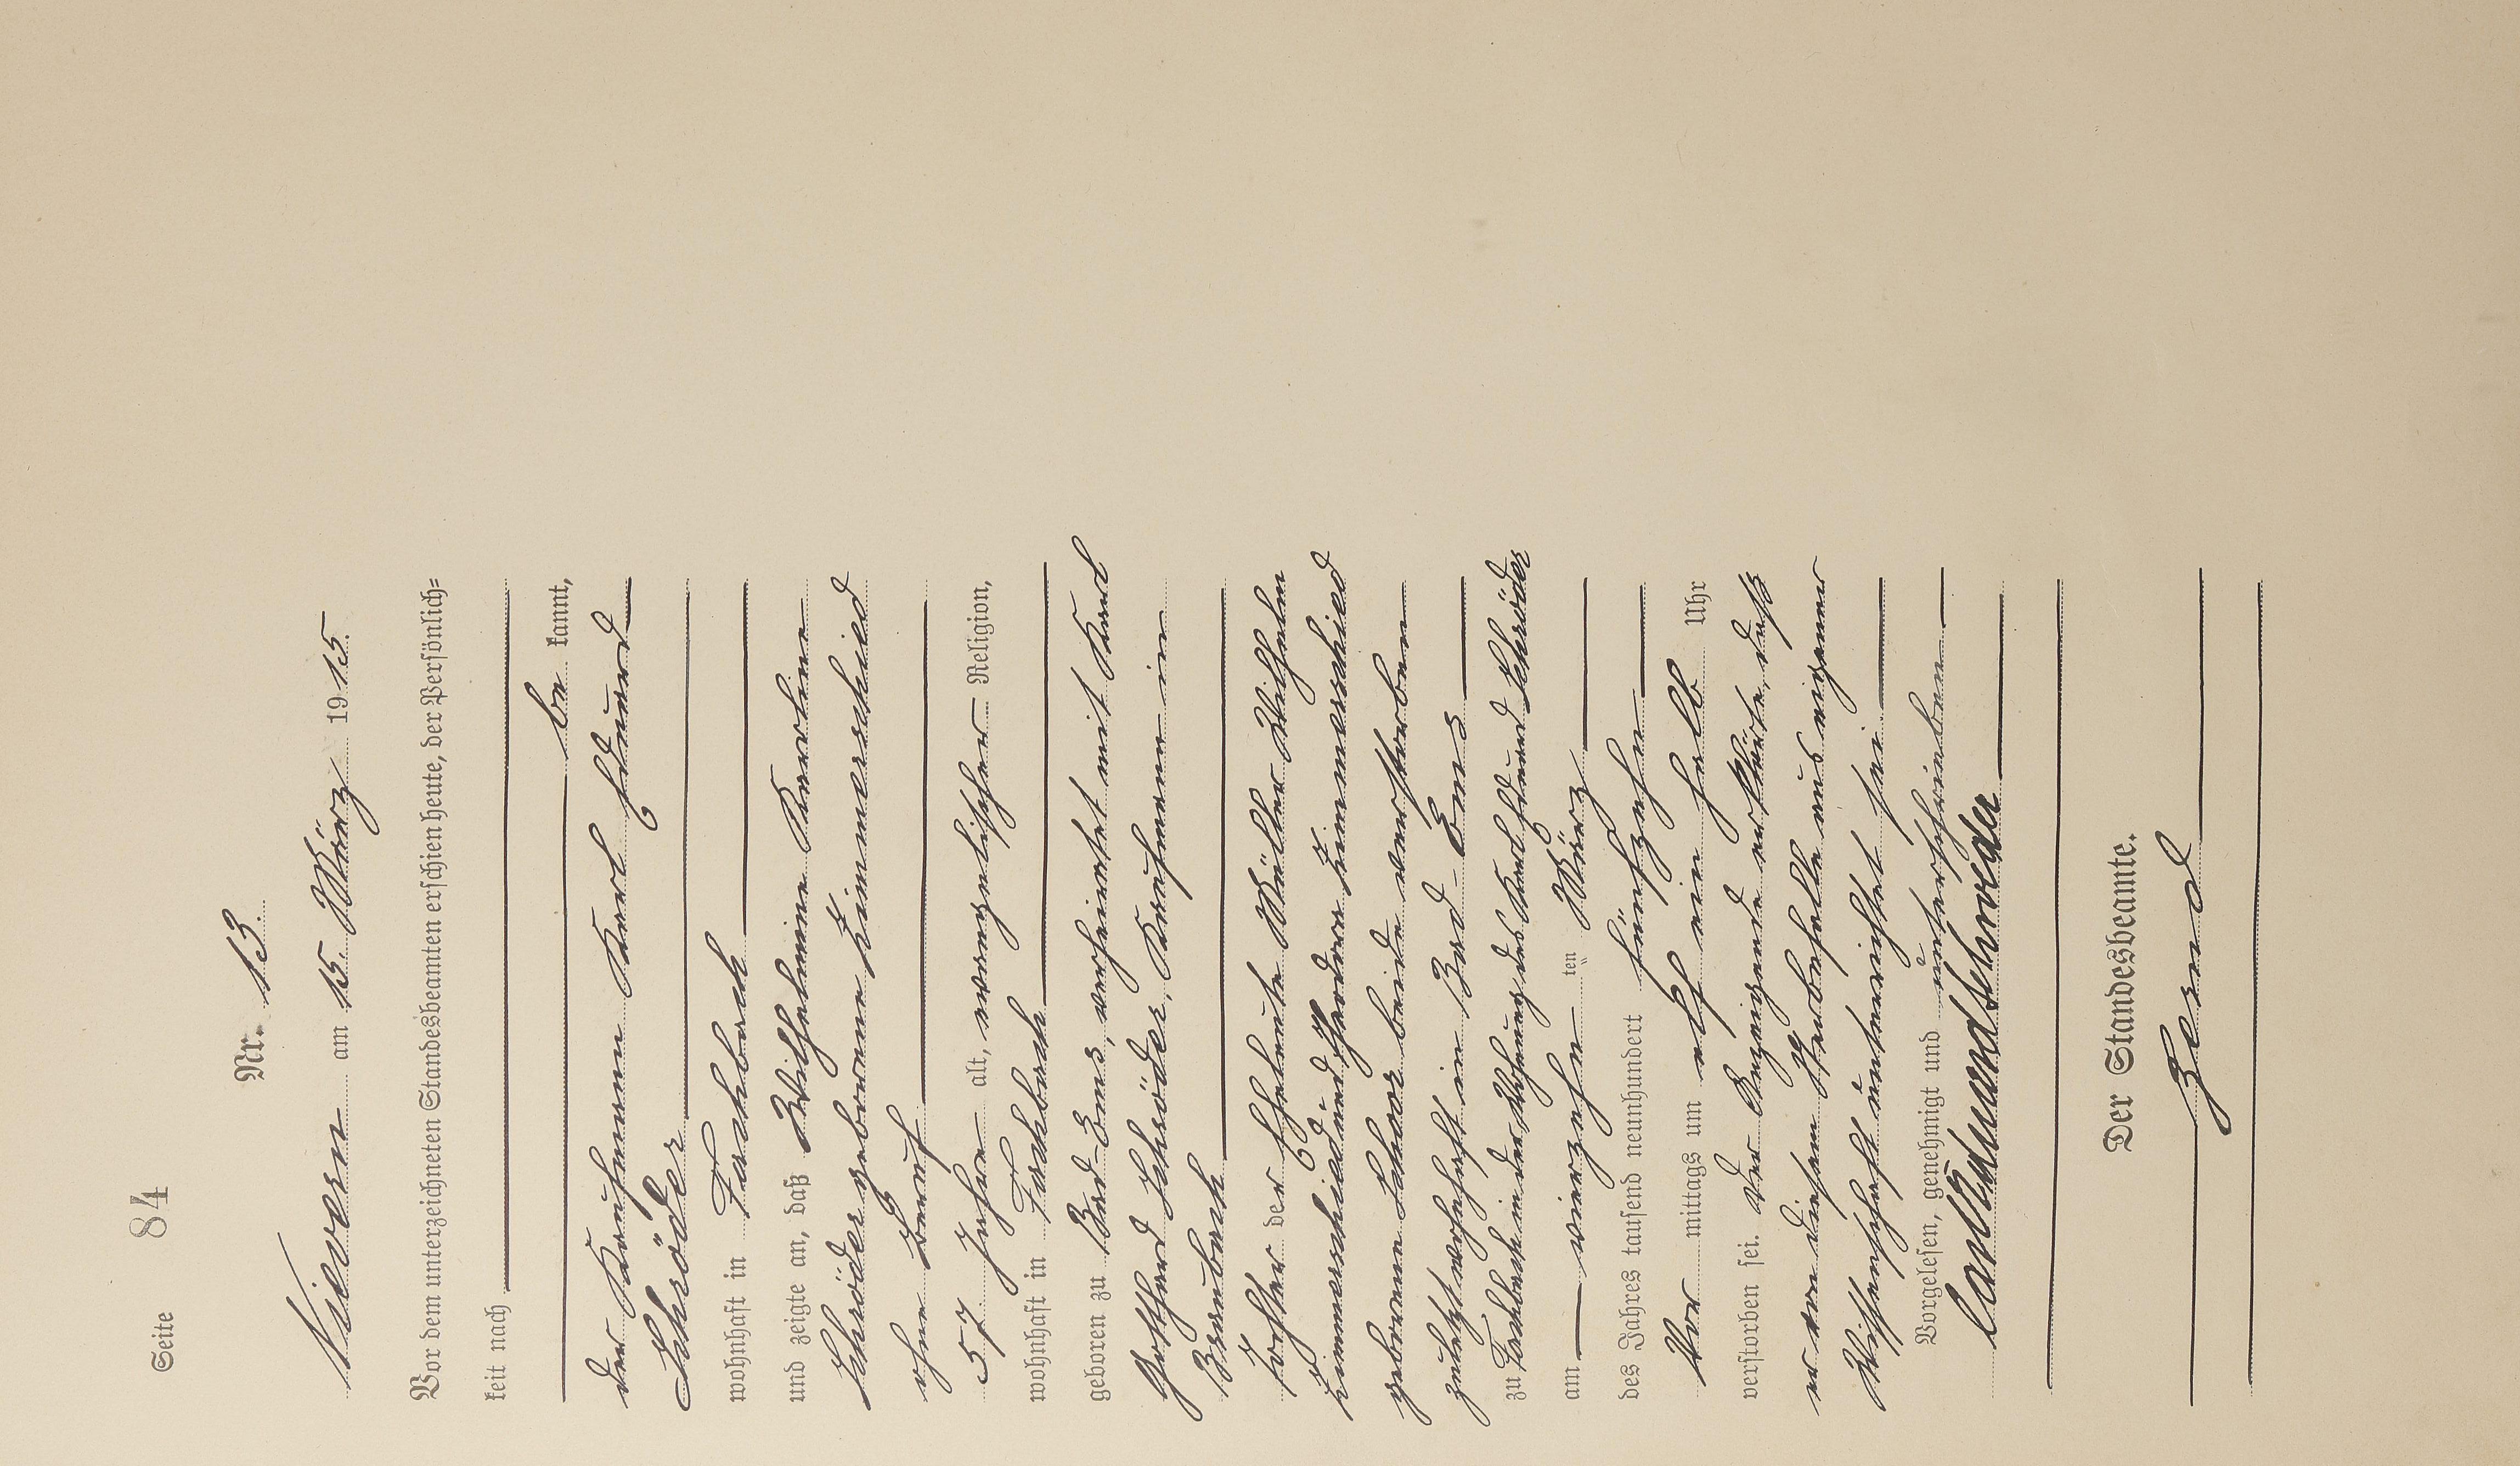 Seite 84
Nr. 13.
Nievern am 15. März 1915.
Vor dem unterzeichneten Standesbeamten erschien heute, der Persönlich-
keit nach
be kannt,
der Kaufmann Karl Eduard
Schröder
wohnhaft in Fachbach
und zeigte an, daß Wilhelmine Karoline
Schröder geborene Zimmerschied
ohne Beruf
57 Jahre alt, evangelischer Religion,
wohnhaft in Fachbach
geboren zu Bad-Ems, verheiratet mit Karl
Gotthard Schröder, Kaufmann in
Braubach
Tochter der Eheleute Müller Wilhelm
Zimmerschied und Theodora Zimmerschied
geborene Schoor beide verstorben
zuletzt wohnhaft in Bad-Ems
zu Fachbach in der Wohnung des Karl Eduard Schröder
am vierzehn ten März
des Jahres tausend neunhundert fünfzehn
Vor mittags um elf ein halb Uhr
verstorben sei. Der Anzeigende erklärte, daß
er von diesem Sterbefalle aus eigener
Wissenschaft unterrichtet sei.
Vorgelesen, genehmigt und unterschrieben
Carl Eduard Schroeder
Der Standesbeamte.